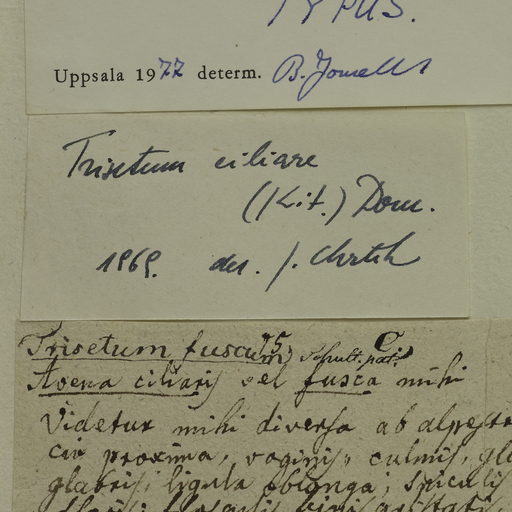 TYPUS.
Uppsala 1977 determ. B. Jonsell
Trisetum ciliare
(Kit.) Dom.
1969. det. J. Chrtek
Trisetum fuscum Schult.
Avena ciliaris vel fusca mihi
Videtur mihi diversa ab alpestr
cui proxima, vaginis, culmis, gl
glabris; ligula oblonga; spiculis